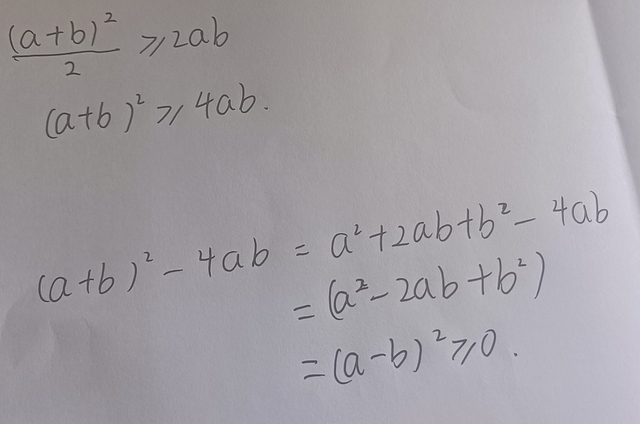 (a+b)²/2 ⩾ 2ab
(a+b)² ⩾ 4ab.
(a+b)² - 4ab = a²+2ab+b² - 4ab
= (a² - 2ab + b²)
= (a-b)² ⩾ 0.